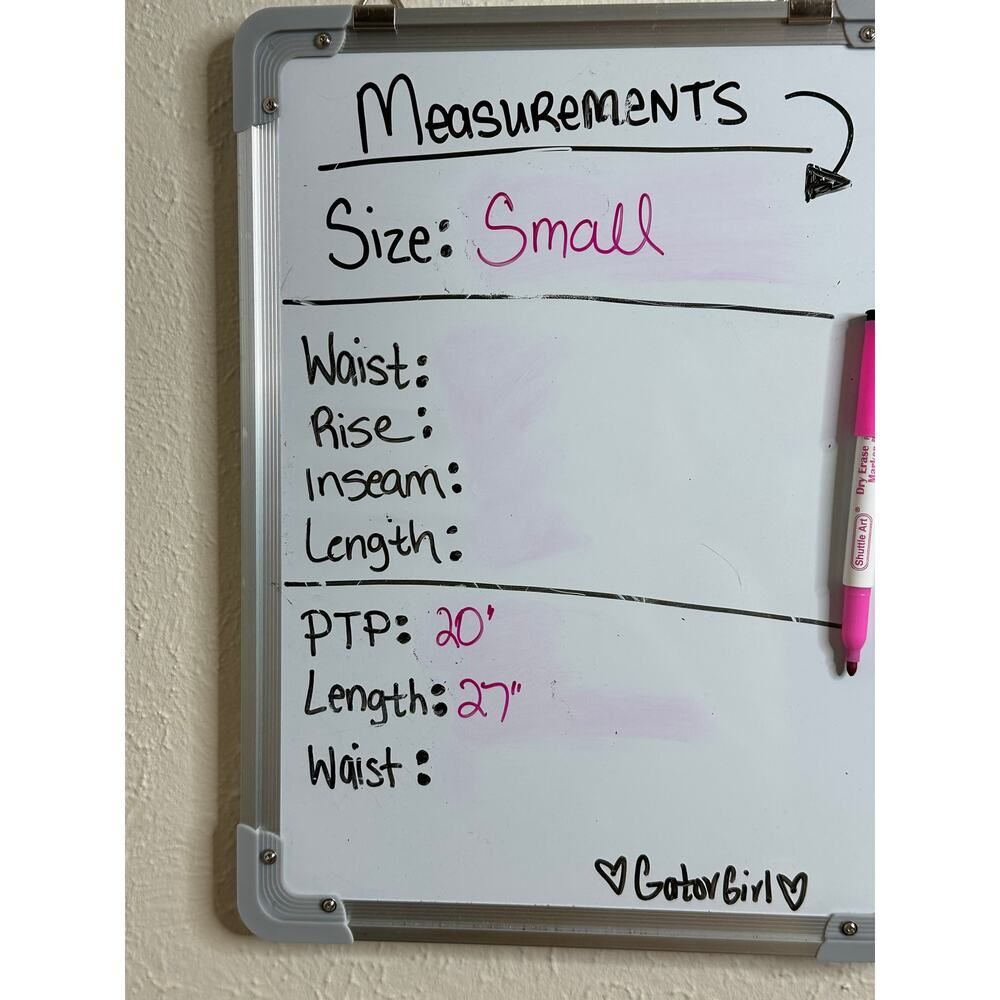 Measurements
Size: Small
Waist:
Rise:
Inseam:
Length:
PTP: 20'
Length: 27"
Waist:
♡GatorGirl♡
Shuttle Art®
Dry Erase
Marker